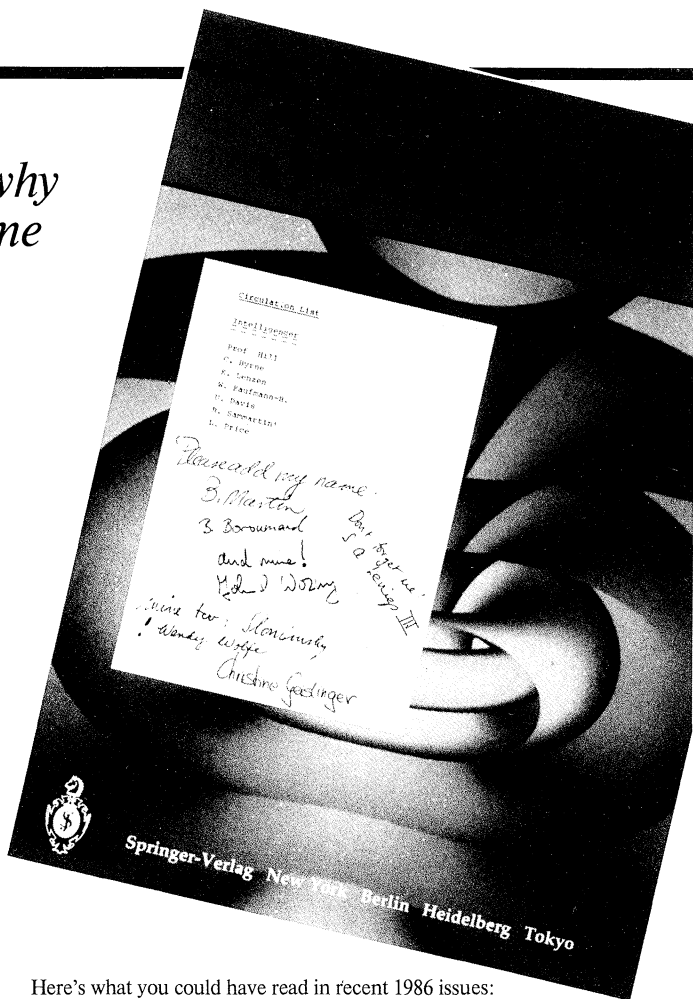 why
me
Circulation List
Intelligencer
Prof Hill
C. Byrne
K. Lenzen
W. Kaufmann-B.
C. Davis
R. Sammartin'
L. Price
Please add my name.
B. Martin
B Boroumand
and mine!
Don't forget me!
mine too:
! Wendy Wolfe
Christine
Springer-Verlag New York Berlin Heidelberg Tokyo
Here's what you could have read in recent 1986 issues: